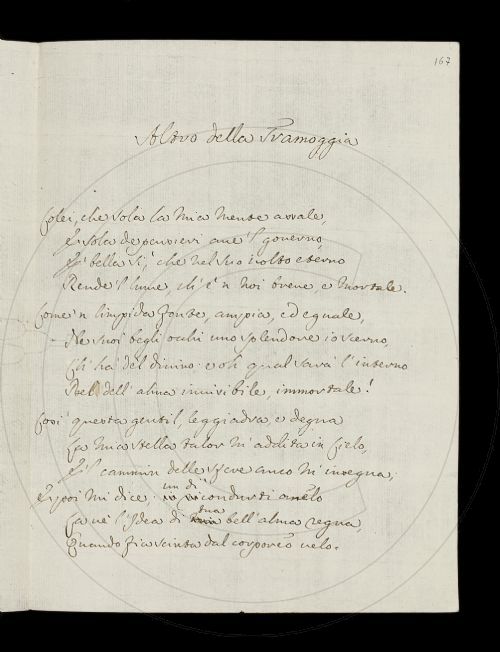 167
Altro della Tramoggia
Colei, che sola la mia mente assale,
E sola de pensieri ave 'l governo,
E' bella sì, che nel suo volto eterno
Rende 'l lume, ch'è 'n noi breve, e mortale.
Come 'n limpida fonte, ampia, ed eguale,
Ne suoi begli occhi uno splendore io scerno,
Ch'ha del divino: e oh qual sarà l'interno
Bel dell'alma invisibile, immortale!
Così questa gentil, leggiadra, e degna
La mia stella talor m'addita in Cielo,
E 'l cammin delle sfere anco m'insegna:
E poi mi dice: un dì condurti anelo
La ve l'Idea di tua bell'alma regna,
Quando fia scinta dal corporeo velo.